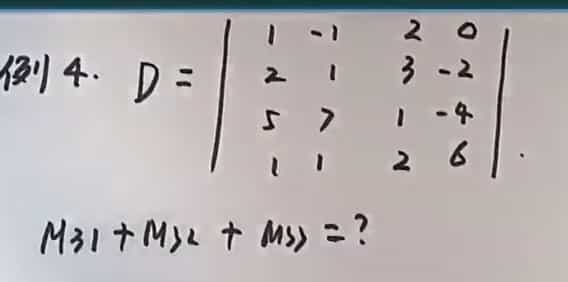 例4. D = | 1 -1 2 0 |
| 2 1 3 -2 |
| 5 7 1 -4 |
| 1 1 2 6 | .
M31 + M32 + M33 = ?